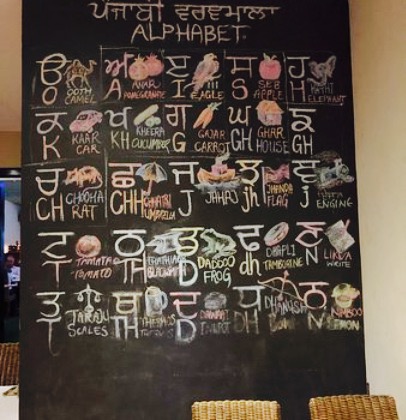 ਪੰਜਾਬੀ ਵਰਣਮਾਲਾ
ALPHABET
ੳ O OOTH CAMEL ਅ A ANAR POMEGRANATE ੲ I EAGLE ਸ S SEB APPLE ਹ H HATHI ELEPHANT
ਕ K KAAR CAR ਖ KH KHEERA CUCUMBER ਗ G GAJAR CARROT ਘ GH GHAR HOUSE ਙ GH
ਚ CH CHOOHA RAT ਛ CHH CHHATRI UMBRELLA ਜ J JAHAJ ਝ jh JHANDA FLAG ਞ j ENGINE
ਟ T TAMATAR TOMATO ਠ TH ਡ D DADDOO FROG ਢ dh DHAPLI TAMBORINE N LINDA WRITE
ਤ T TARAJU SCALES ਥ TH THERMOS ਦ D DAWAAT INKPOT ਧ DH DHANUSH ਨ N NIMBOO LEMON